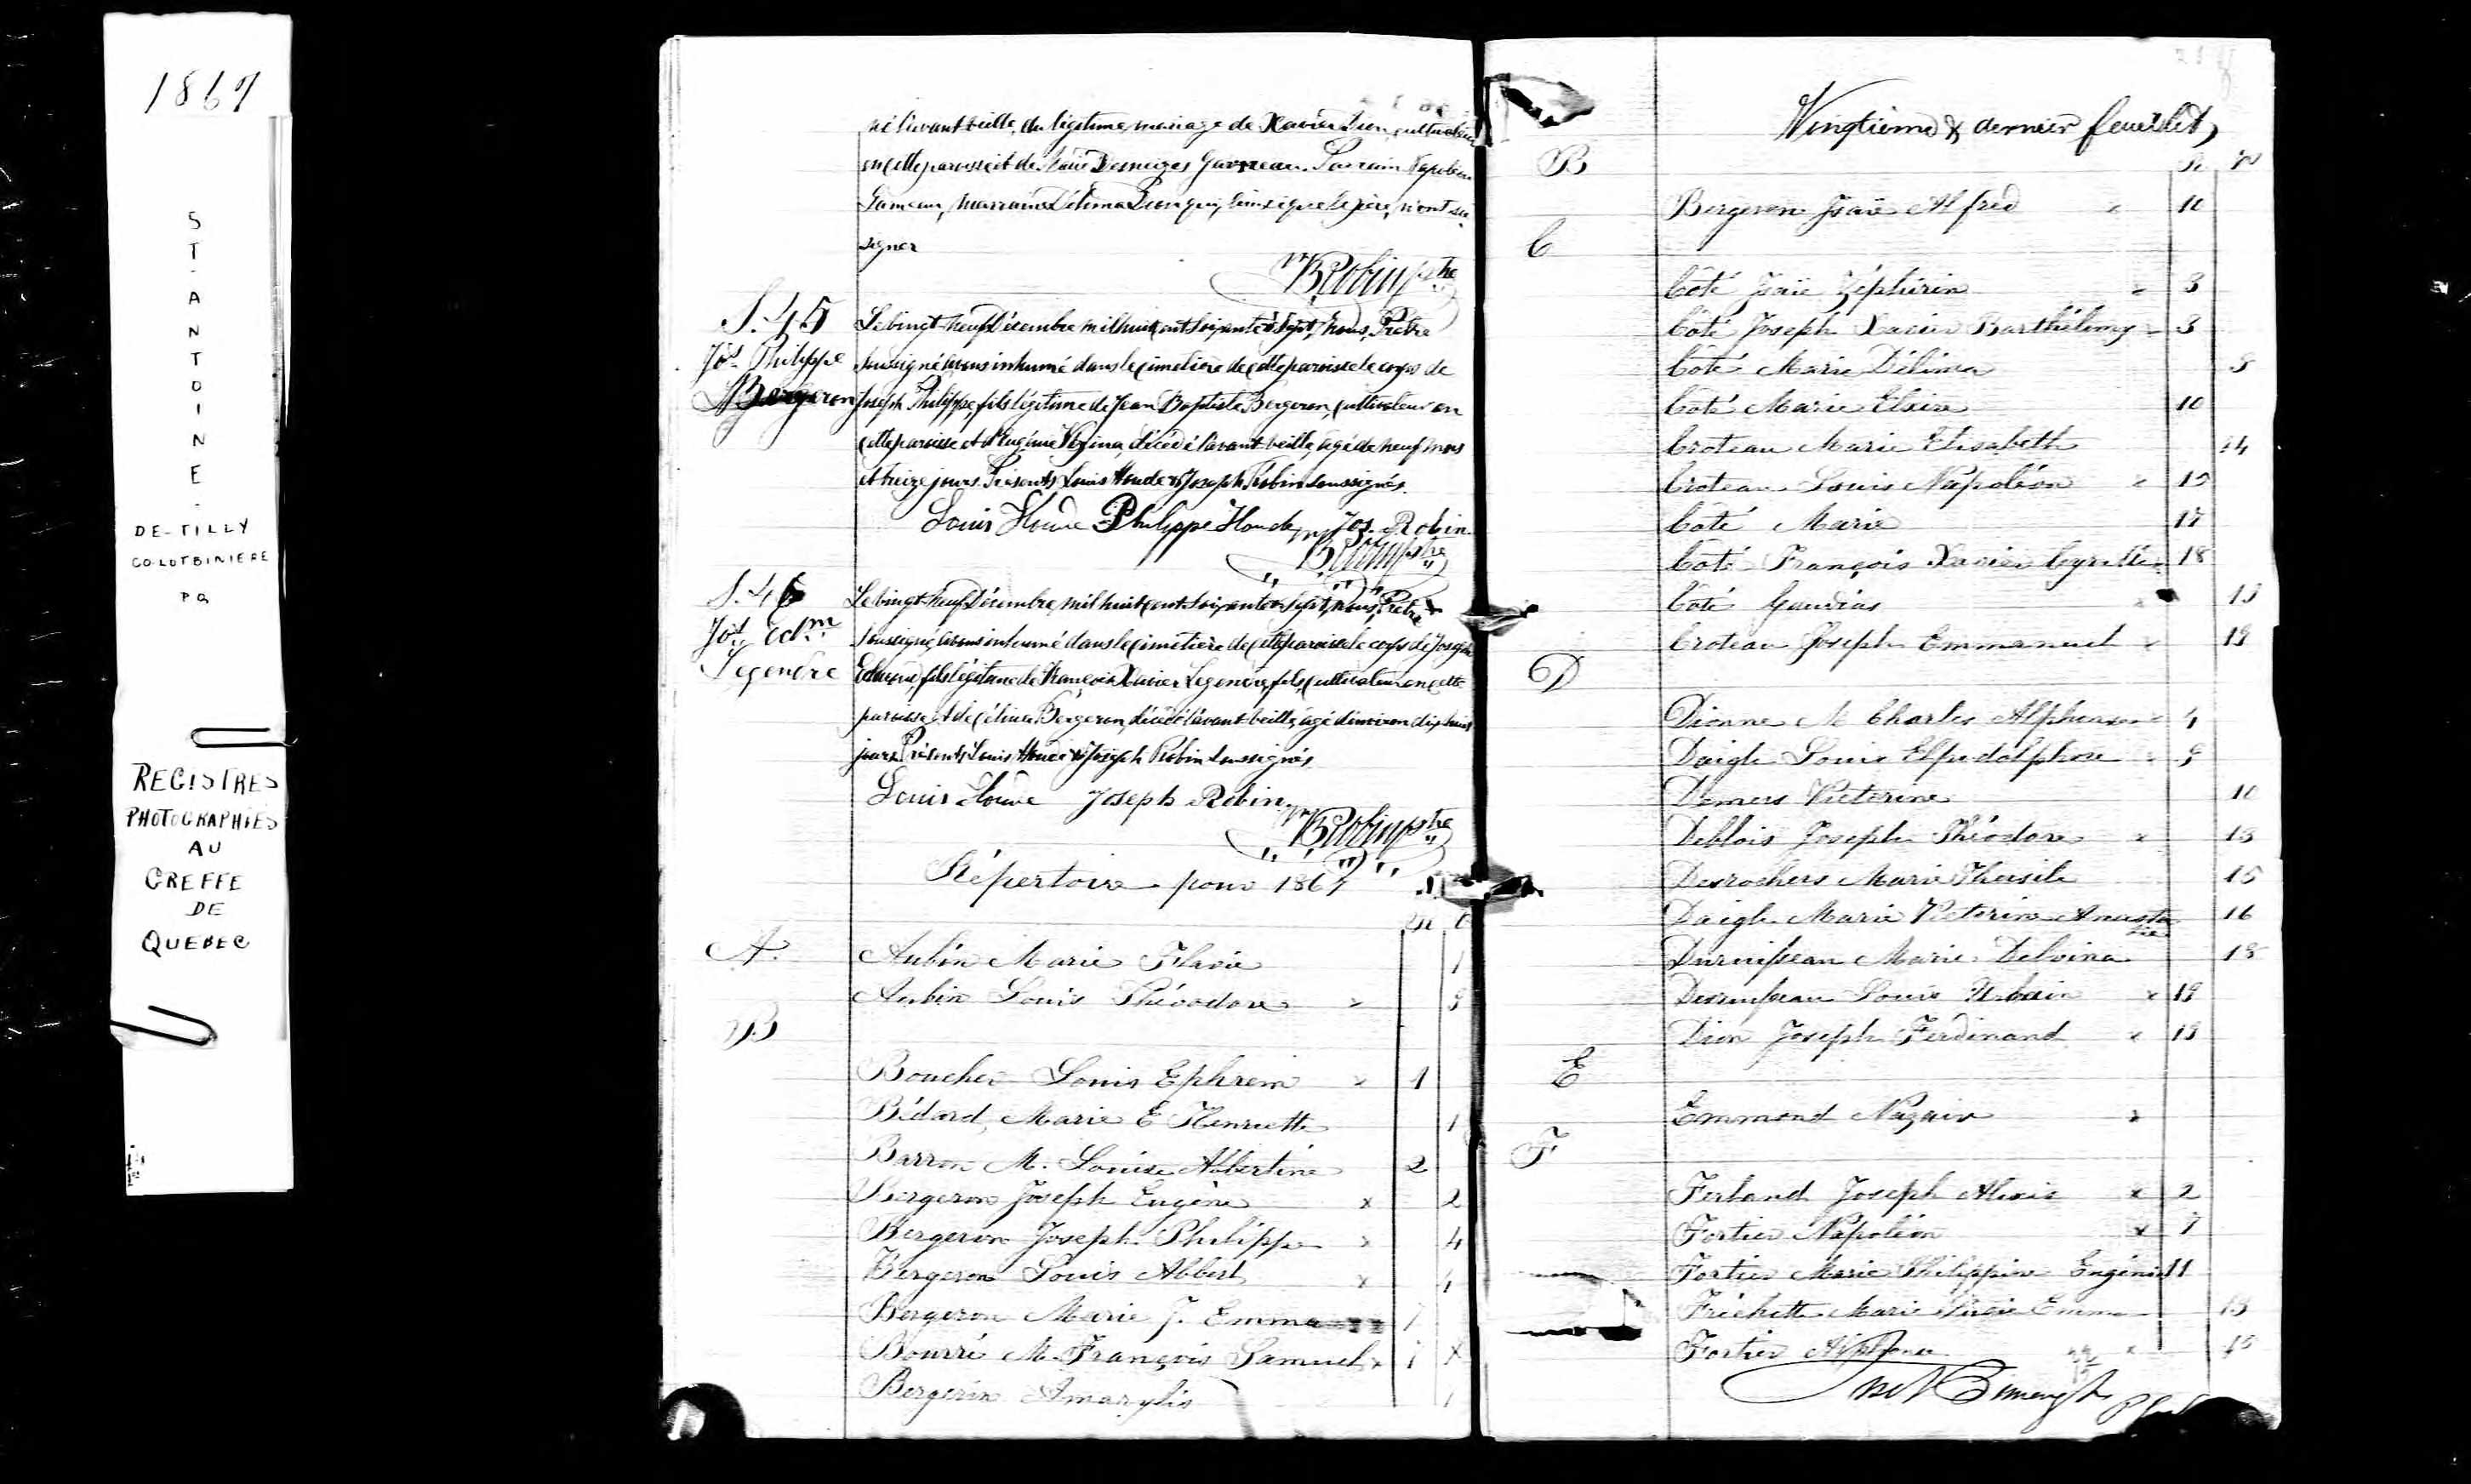 1867
ST-ANTOINE-
DE-TILLY
CO-LOTBINIERE
PQ
REGISTRES
PHOTOGRAPHIÉS
AU
GREFFE
DE
QUEBEC
né l'avant veille, du légitime mariage de Xavier Dion, cultivateur
en cette paroisse et de Marie Desneiges Garneau. Parrain Napoléon
Garneau, Marraine Délima Dion qui, ainsi que le père, n'ont su
signer
Robin ptre
S. 45
Jos. Philippe
Bergeron
Le vingt-neuf Décembre mil huit cent soixante & sept, nous, Prêtre
soussigné avons inhumé dans le cimetière de cette paroisse le corps de
Joseph Philippe fils légitime de Jean Baptiste Bergeron, cultivateur en
cette paroisse et d'Eugénie Vézina, décédé l'avant veille, agé de neuf mois
et treize jours. Présents Louis Houde & Joseph Robin soussignés.
Louis Houde Philippe Houde Jos. Robin
Robin ptre
S. 46
Jos. Edm.
Legendre
Le vingt-neuf Décembre, mil huit cent soixante & sept, nous, Prêtre
soussigné, avons inhumé dans le cimetière de cette paroisse le corps de Joseph
Edmond, fils légitime de François Xavier Legendre, fils, cultivateur en cette
paroisse, et de Célina Bergeron, décédé l'avant veille, agé d'environ dix huit
jours. Présents Louis Houde & Joseph Robin soussignés.
Louis Houde Joseph Robin
Robin ptre
Répertoire pour 1867
A.
Aubin Marie Flavie 1
Aubin Louis Théodore x
B
Boucher Louis Ephrem x 1
Bédard, Marie E Henriette 1
Barron M. Louise Albertine 2
Bergeron Joseph Eugène x 2
Bergeron Joseph Philippe x 4
Bergeron Louis Albert x
Bergeron Marie J. Emma
Bourré M. François Samuel x
Bergeron Amarylis
Vingtième & dernier feuillet
B
Bergeron Isaïe Alfred x 10
C
Côté Isaïe Zéphirin 3
Côté Joseph Xavier Barthélemy 3
Côté Marie Délima
Côté Marie Elzire 10
Croteau Marie Elisabeth 14
Croteau Louis Napoléon x
Côté Marie 17
Côté François Xavier Cyrille 18
Côté Gaudias
Croteau Joseph Emmanuel x
D
Dionne M Charles Alphonse 4
Daigle Louis
Demers Victorine 10
Deblois Joseph Théodore x
Desrochers Marie 15
Daigle Marie Victorine Anasta
sie 16
Durusseau Marie Delvina
Durusseau Louis Urbain x 19
Dion Joseph Ferdinand x
E
Emmond Nazaire x
F
Ferland Joseph Alexis x 2
Fortier Napoléon x 7
Fortier Marie Philippine Eugénie 11
Fréchette Marie Emma
Fortier Alphonse x